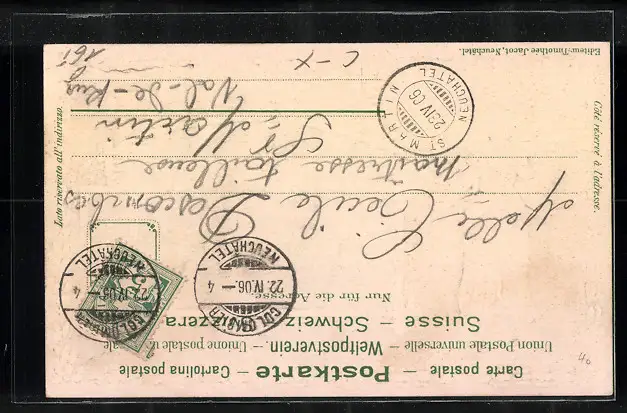 Carte postale – Postkarte – Cartolina postale
Union Postale universelle – Weltpostverein. – Unione postale u
Suisse – Schweiz. – Svizzera
Nur für die Adresse.
COLOMBIER
NEUCHÂTEL
22.IV.06.– 4
COLOMBIER
NEUCHÂTEL
22.IV.06.– 4
Melle Cécile Descombes
maîtresse tailleuse
St Martin
Val-de-Ruz
Côté réservé à l'adresse.
Lato riservato all'indirizzo.
ST MARTIN
NEUCHATEL
23 IV 06
Editeur: Timothée Jacot, Neuchâtel.
C-X
161
40